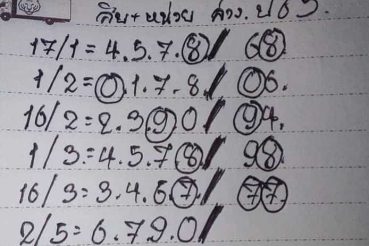 สิบ+หน่วย ล่าง. ปี 63.
17/1 = 4.5.7.8/ 68.
1/2 = 0.1.7.8./ 06.
16/2 = 2.3.9.0/ 94.
1/3 = 4.5.7.8/ 98.
16/3 = 3.4.6.7./ 77
2/5 = 6.7.9.0/